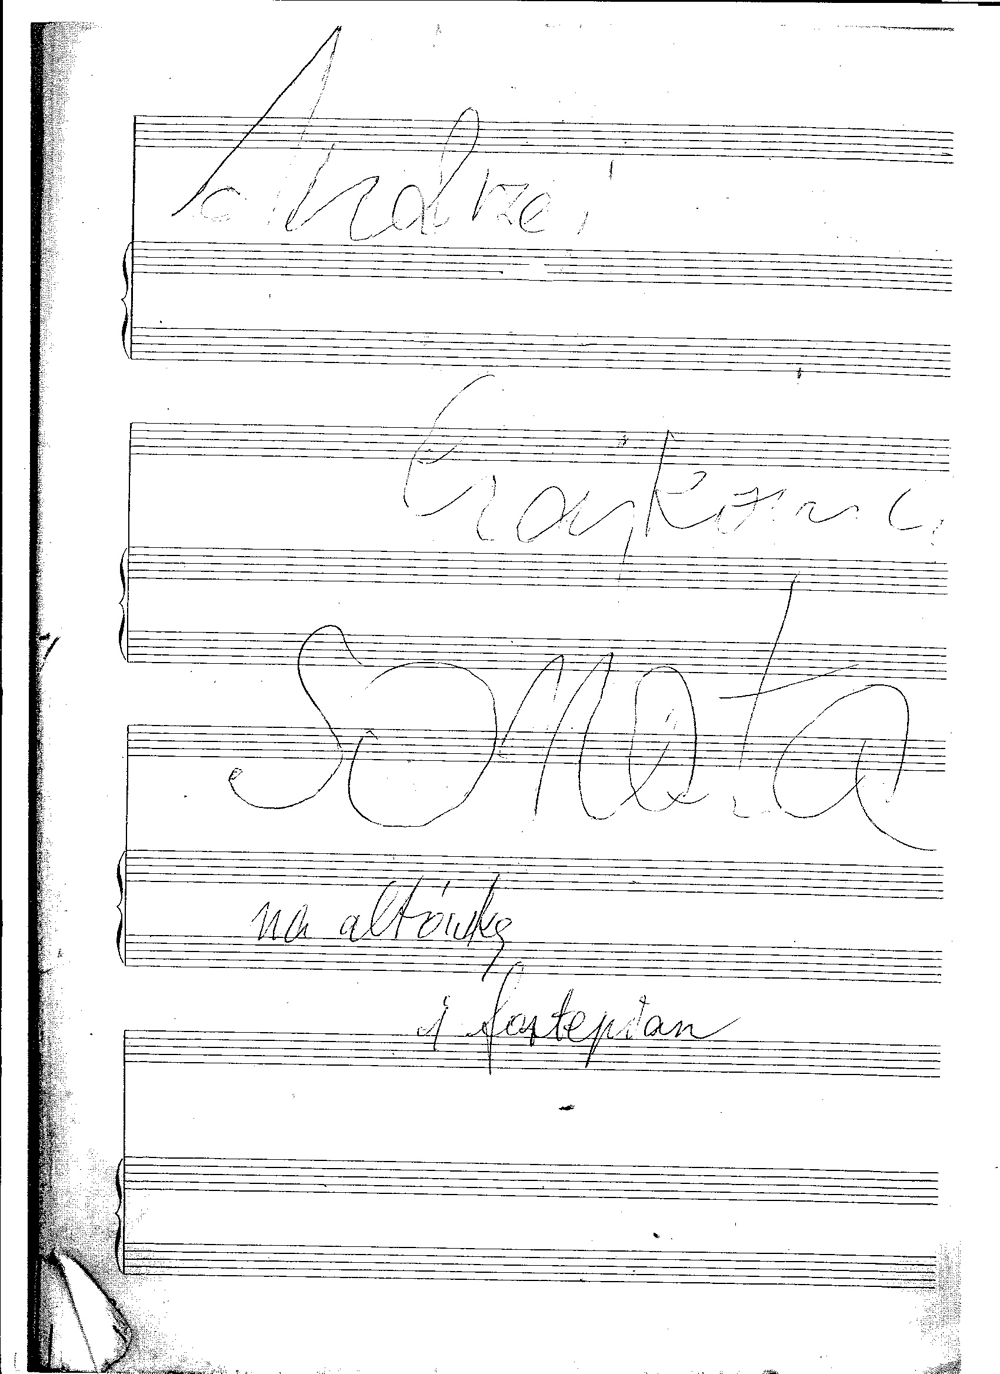 Andrzej
Czajkowski
Sonata
na altówkę
i fortepian